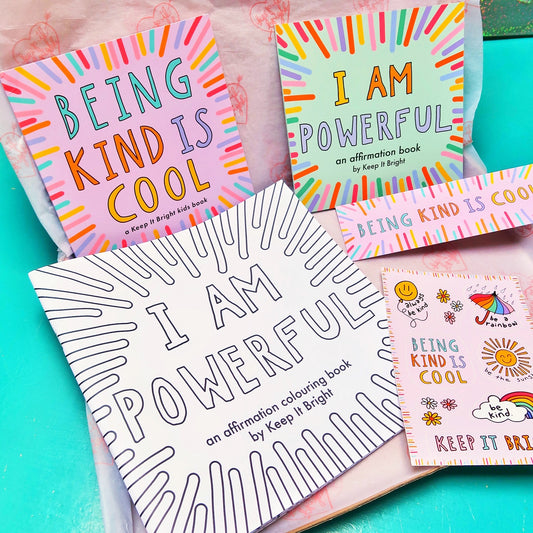 BEING
KIND IS
COOL
a Keep It Bright kids book
I AM
POWERFUL
an affirmation book
by Keep It Bright
BEING KIND IS COOL
I AM
POWERFUL
an affirmation colouring book
by Keep It Bright
always
be kind
be a
rainbow
BEING
KIND IS
COOL
be the sun
be
kind
KEEP IT BRI